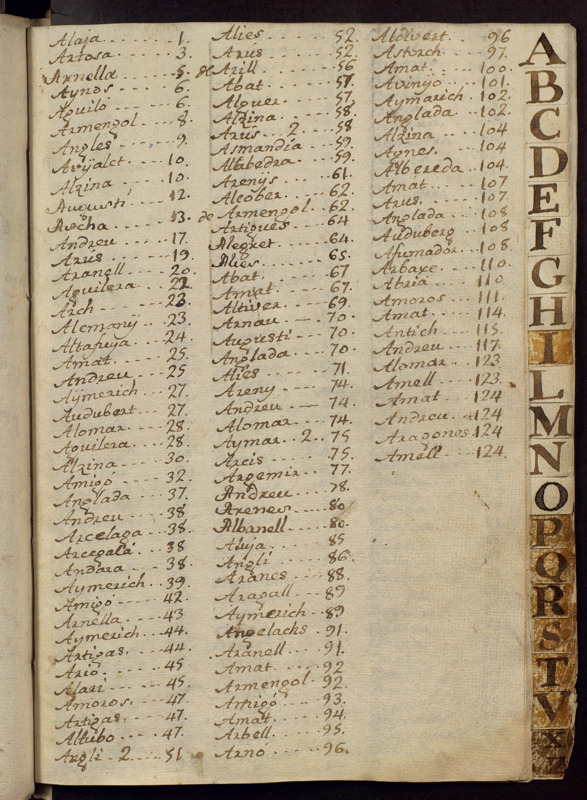 Alaja 1.
Artosa 3.
Arnella 5.
Aynos 6.
Aguiló 6.
Armengol 8.
Angles 9.
Avijalet 10.
Alzina 10.
Augustí 12.
Rocha 13.
Andreu 17.
Arús 19.
Aranell 20.
Aguilera 22
Arch 23
Alemanÿ 23.
Altafuja 24.
Amat 25.
Andreu 25
Aÿmerich 27.
Audubert 27.
Alomar 28.
Aguilera 28.
Alzina 30.
Amigó 32
Anglada 37.
Andreu 38
Arcelaga 38
Arcegalá 38
Andara 38
Aymerich 39.
Amigó 42.
Arnella 43
Aymerich 44.
Artigas 44.
Arió 45
Alari 45
Amoros 47.
Artigas 47.
Altubo 47.
Argli 2 51
Alies 52.
Arus 52
de Arill 56
Abat 57.
Alguer 57.
Alzina 58.
Arús 2 58
Asmandia 59.
Altabedra 59.
Arenys 61.
Alcober 62.
de Armengol 62.
Artigues 64
Alegret 64.
Alies 65.
Abat 67
Amat 67.
Altiver 69.
Arnau 70.
Augusti 70.
Anglada 70.
Alies 71
Areny 74.
Andreu 74.
Alomar 74.
Aymar 2. 75
Arcis 75.
Argemir 77.
Andreu 78.
Arenes 80
Albanell 80.
Aluja 85
Angli 86.
Aranes 88.
Aragall 89
Aymerich 89
Angelachs 91.
Aranell 91.
Amat 92
Armengol 92.
Amigó 93.
Amat 94.
Arbell 95.
Arnó 96.
Aldivert 96
Astorch 97.
Amat 100.
Avinyó 101.
Aymarich 102.
Anglada 102.
Alzina 104
Agnes 104.
Albereda 104.
Amat 107
Arus 107.
Anglada 108
Auduberg 108
Afumador 108.
Arbaxe 110.
Abria 110
Amoros 111.
Amat 114
Antich 115.
Andreu 117.
Alomar 123
Amell 123.
Amat 124
Andreu 124
Aragones 124
Amell 124.
A
B
C
D
E
F
G
H
I
L
M
N
O
P
Q
R
S
T
V
X